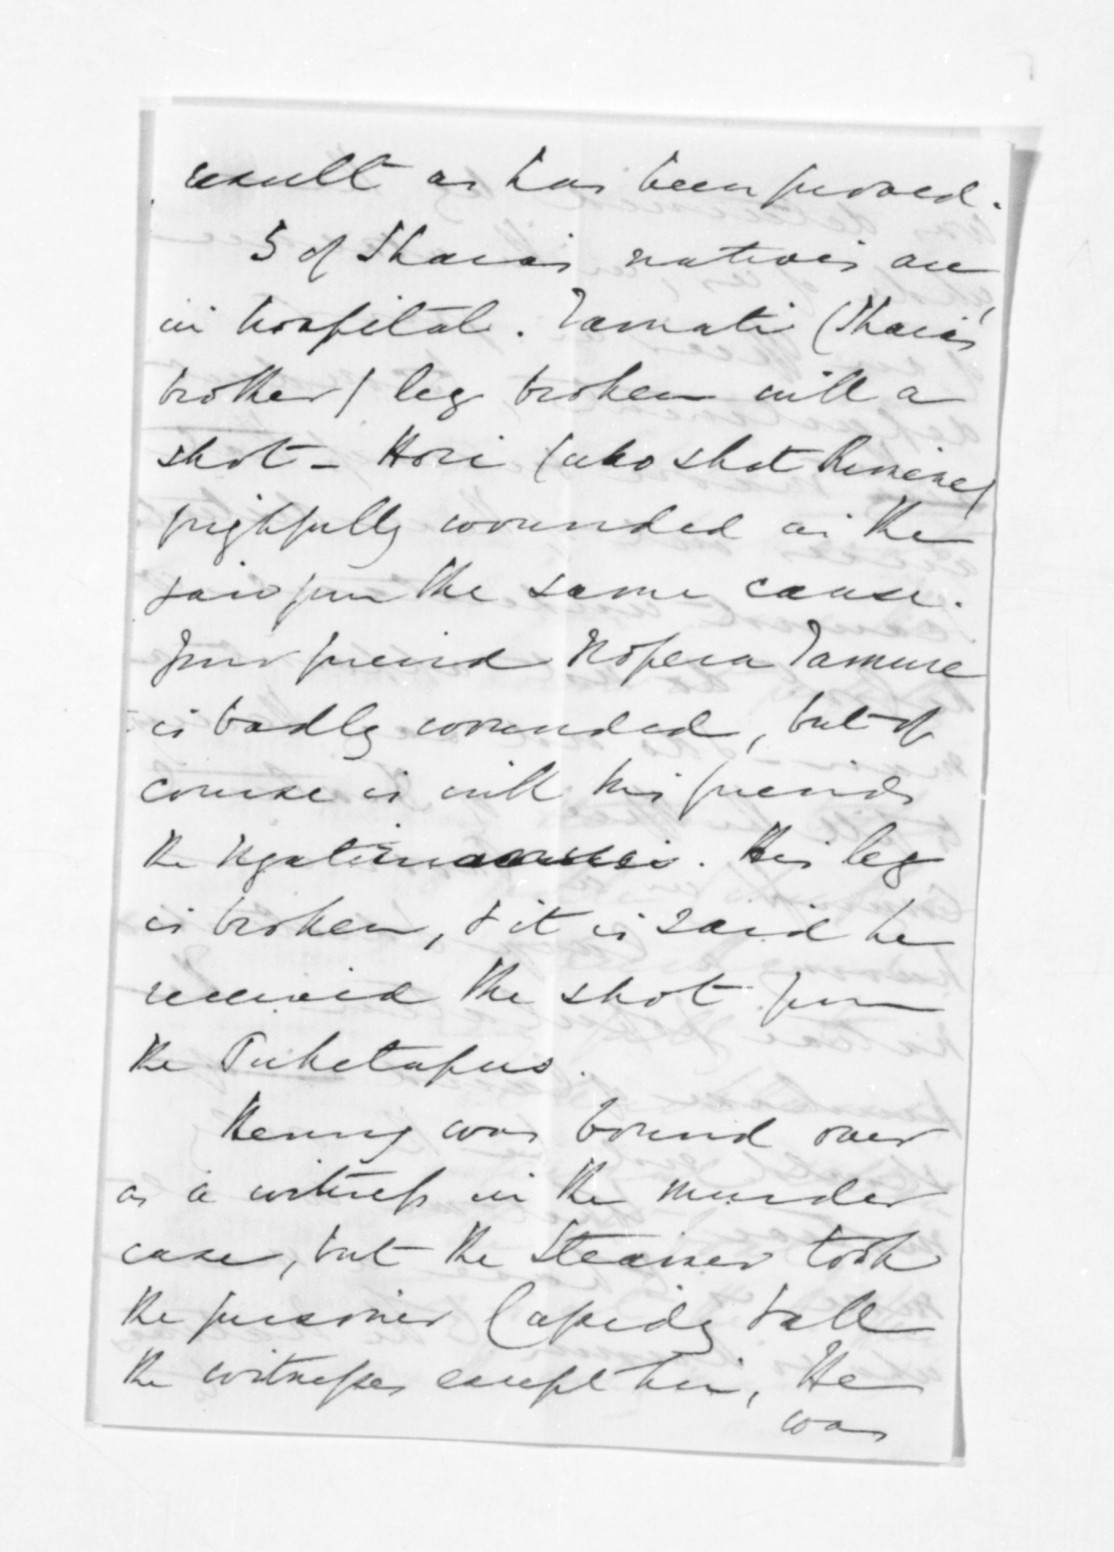 result as has been proved.
5 of Ihaia's natives are
in hospital. Tamati (Ihaia's
brother) leg broken with a
shot - Hori (who shot Rimene)
frightfully wounded in the
jaw from the same cause.
Your friend Ropera Tamure
is badly wounded, but of
course is with his friends
the Ngatiruanui. His leg
is broken, & it is said he
received the shot from
the Puketapus.
Henry was bound over
as a witness in the murder
case, but the Steamer took
the prisoner Cassidy & all
the witnesses except him, He
was